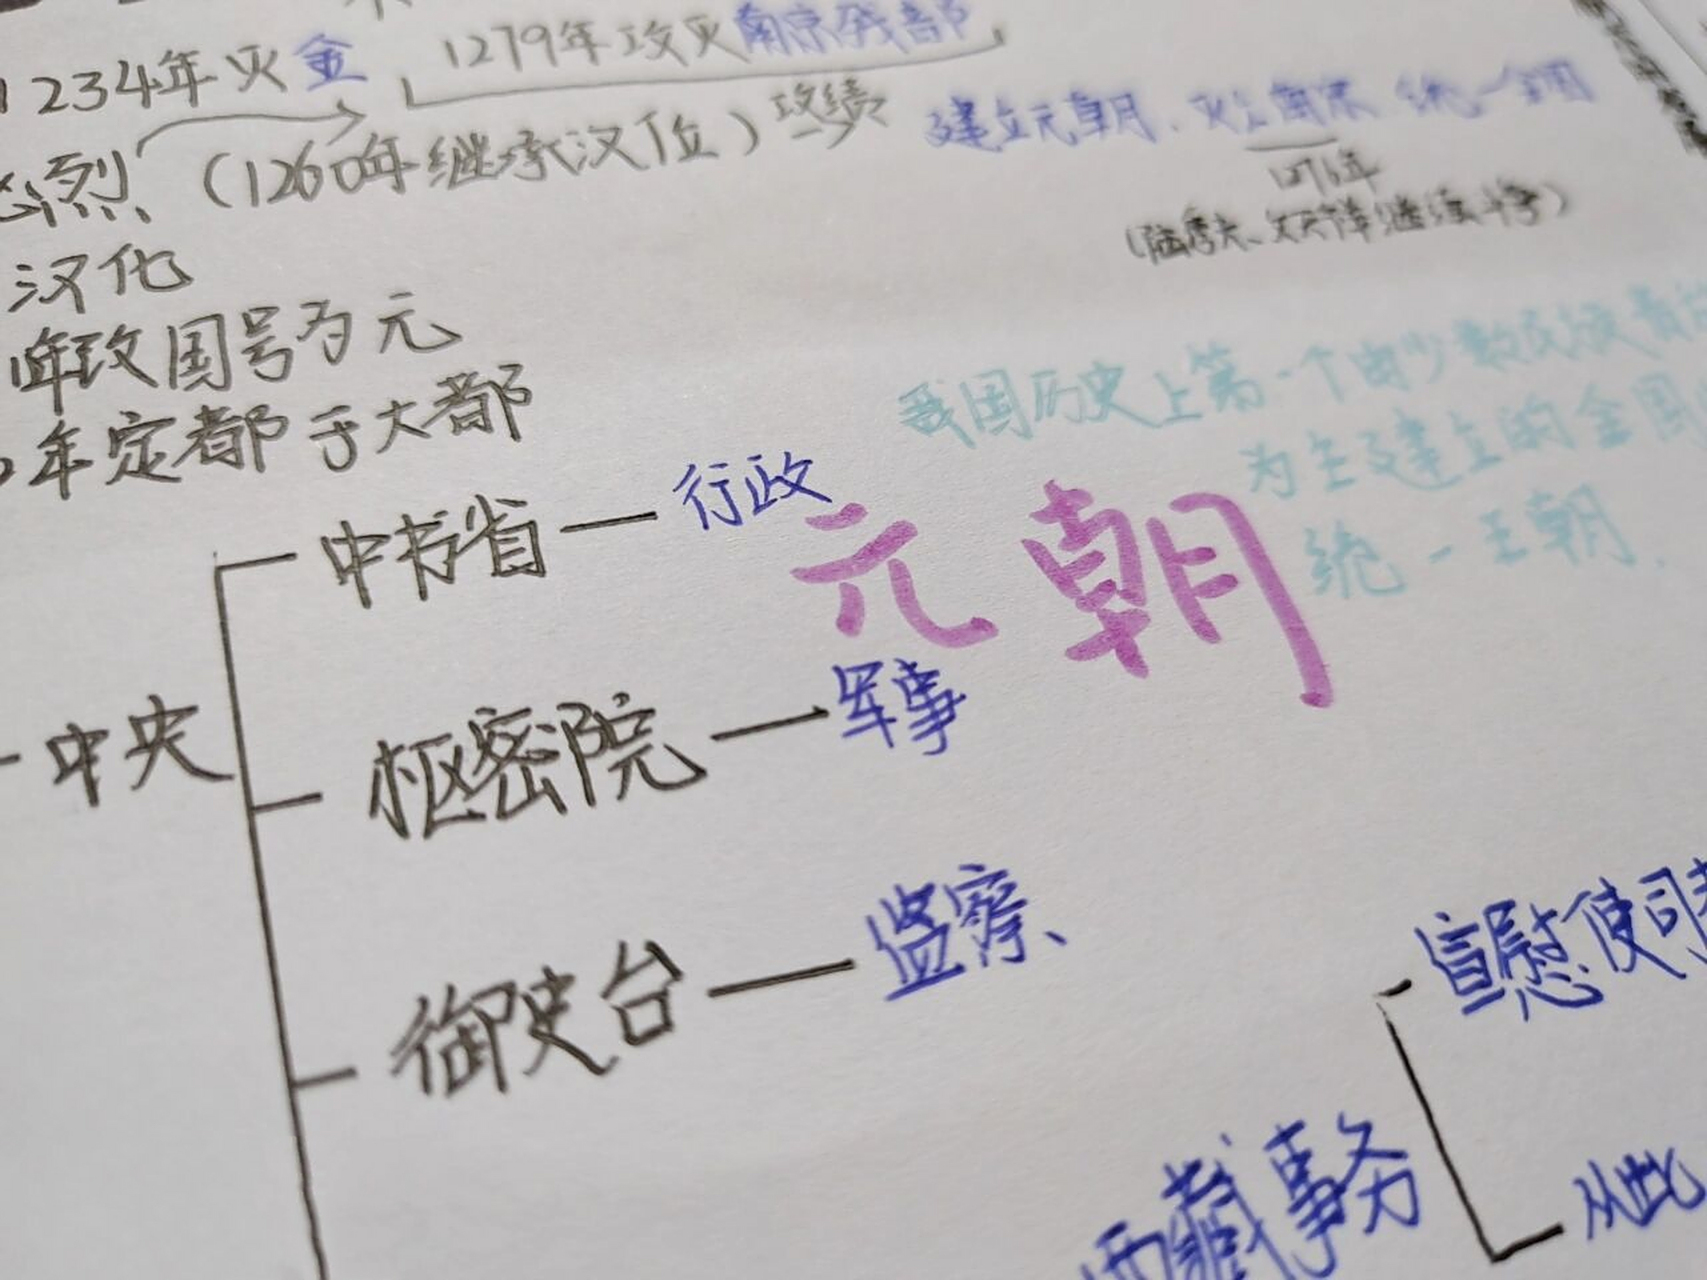 1234年灭金 1279年攻灭南宋残部
忽烈 (1260年继承汉位) 政绩 建立元朝、灭亡南宋 统一全国
1276年
(陆秀夫、文天祥继续斗争)
汉化
年改国号为元
年定都于大都
我国历史上第一个由少数民族贵
为主建立的全国
统一王朝.
元朝
中央
中书省 — 行政
枢密院 — 军事
御史台 — 监察、
宣慰使司
西藏事务
从此